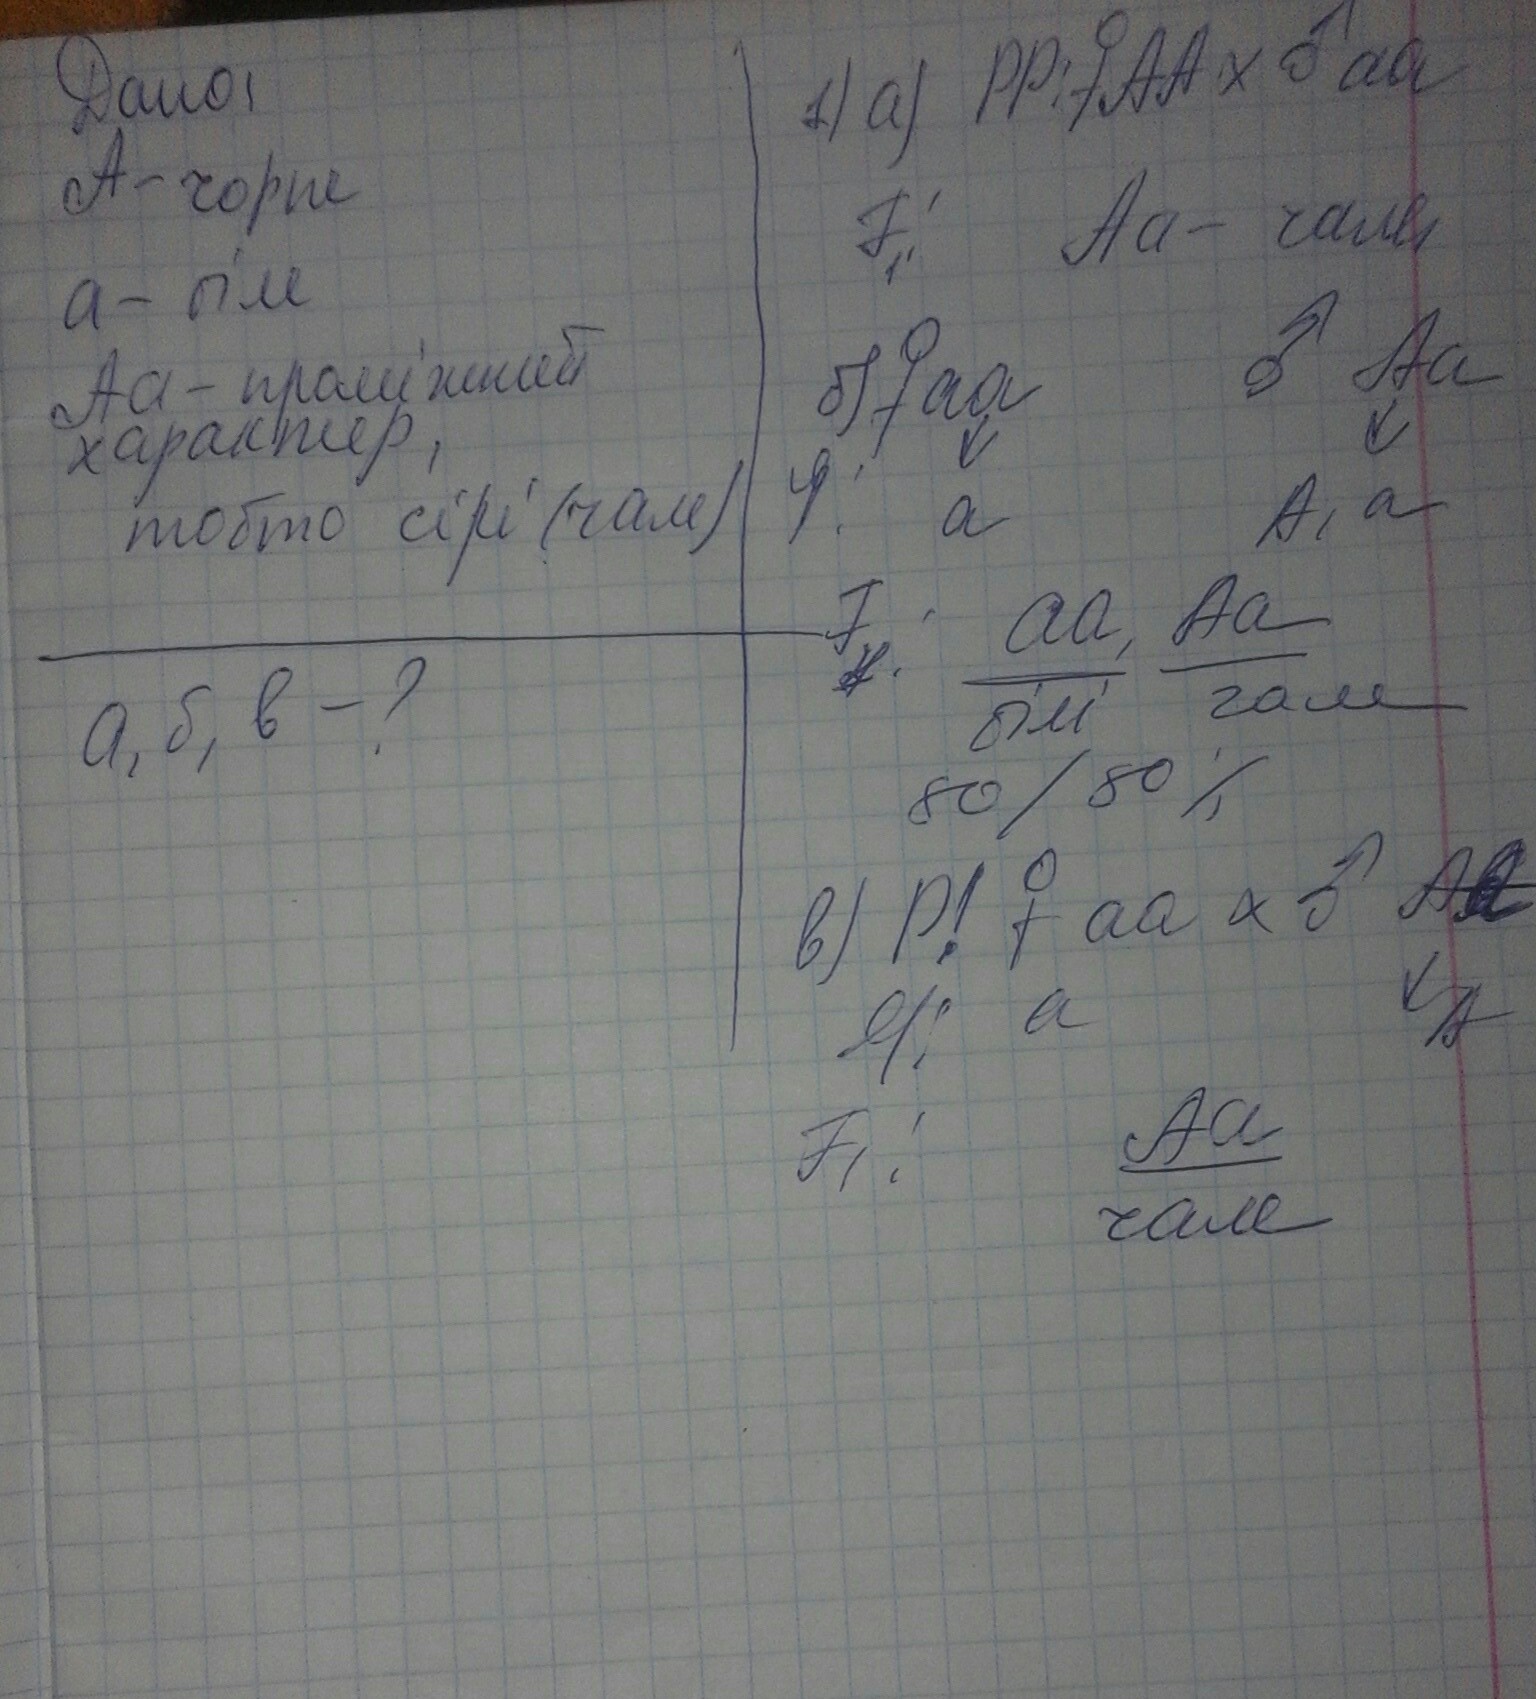 Дано:
А – чорне
а – біле
Аа – проміжний
характер,
тобто сірі (чале)
а, б, в – ?
1) а) РР: ♀ АА х ♂ аа
F1: Аа – чале
б) ♀ аа ♂ Аа
а А, а
F1: аа, Аа
білі чале
50 / 50 %
в) Р: ♀ аа х ♂ АА
а А
F1: Аа
чале